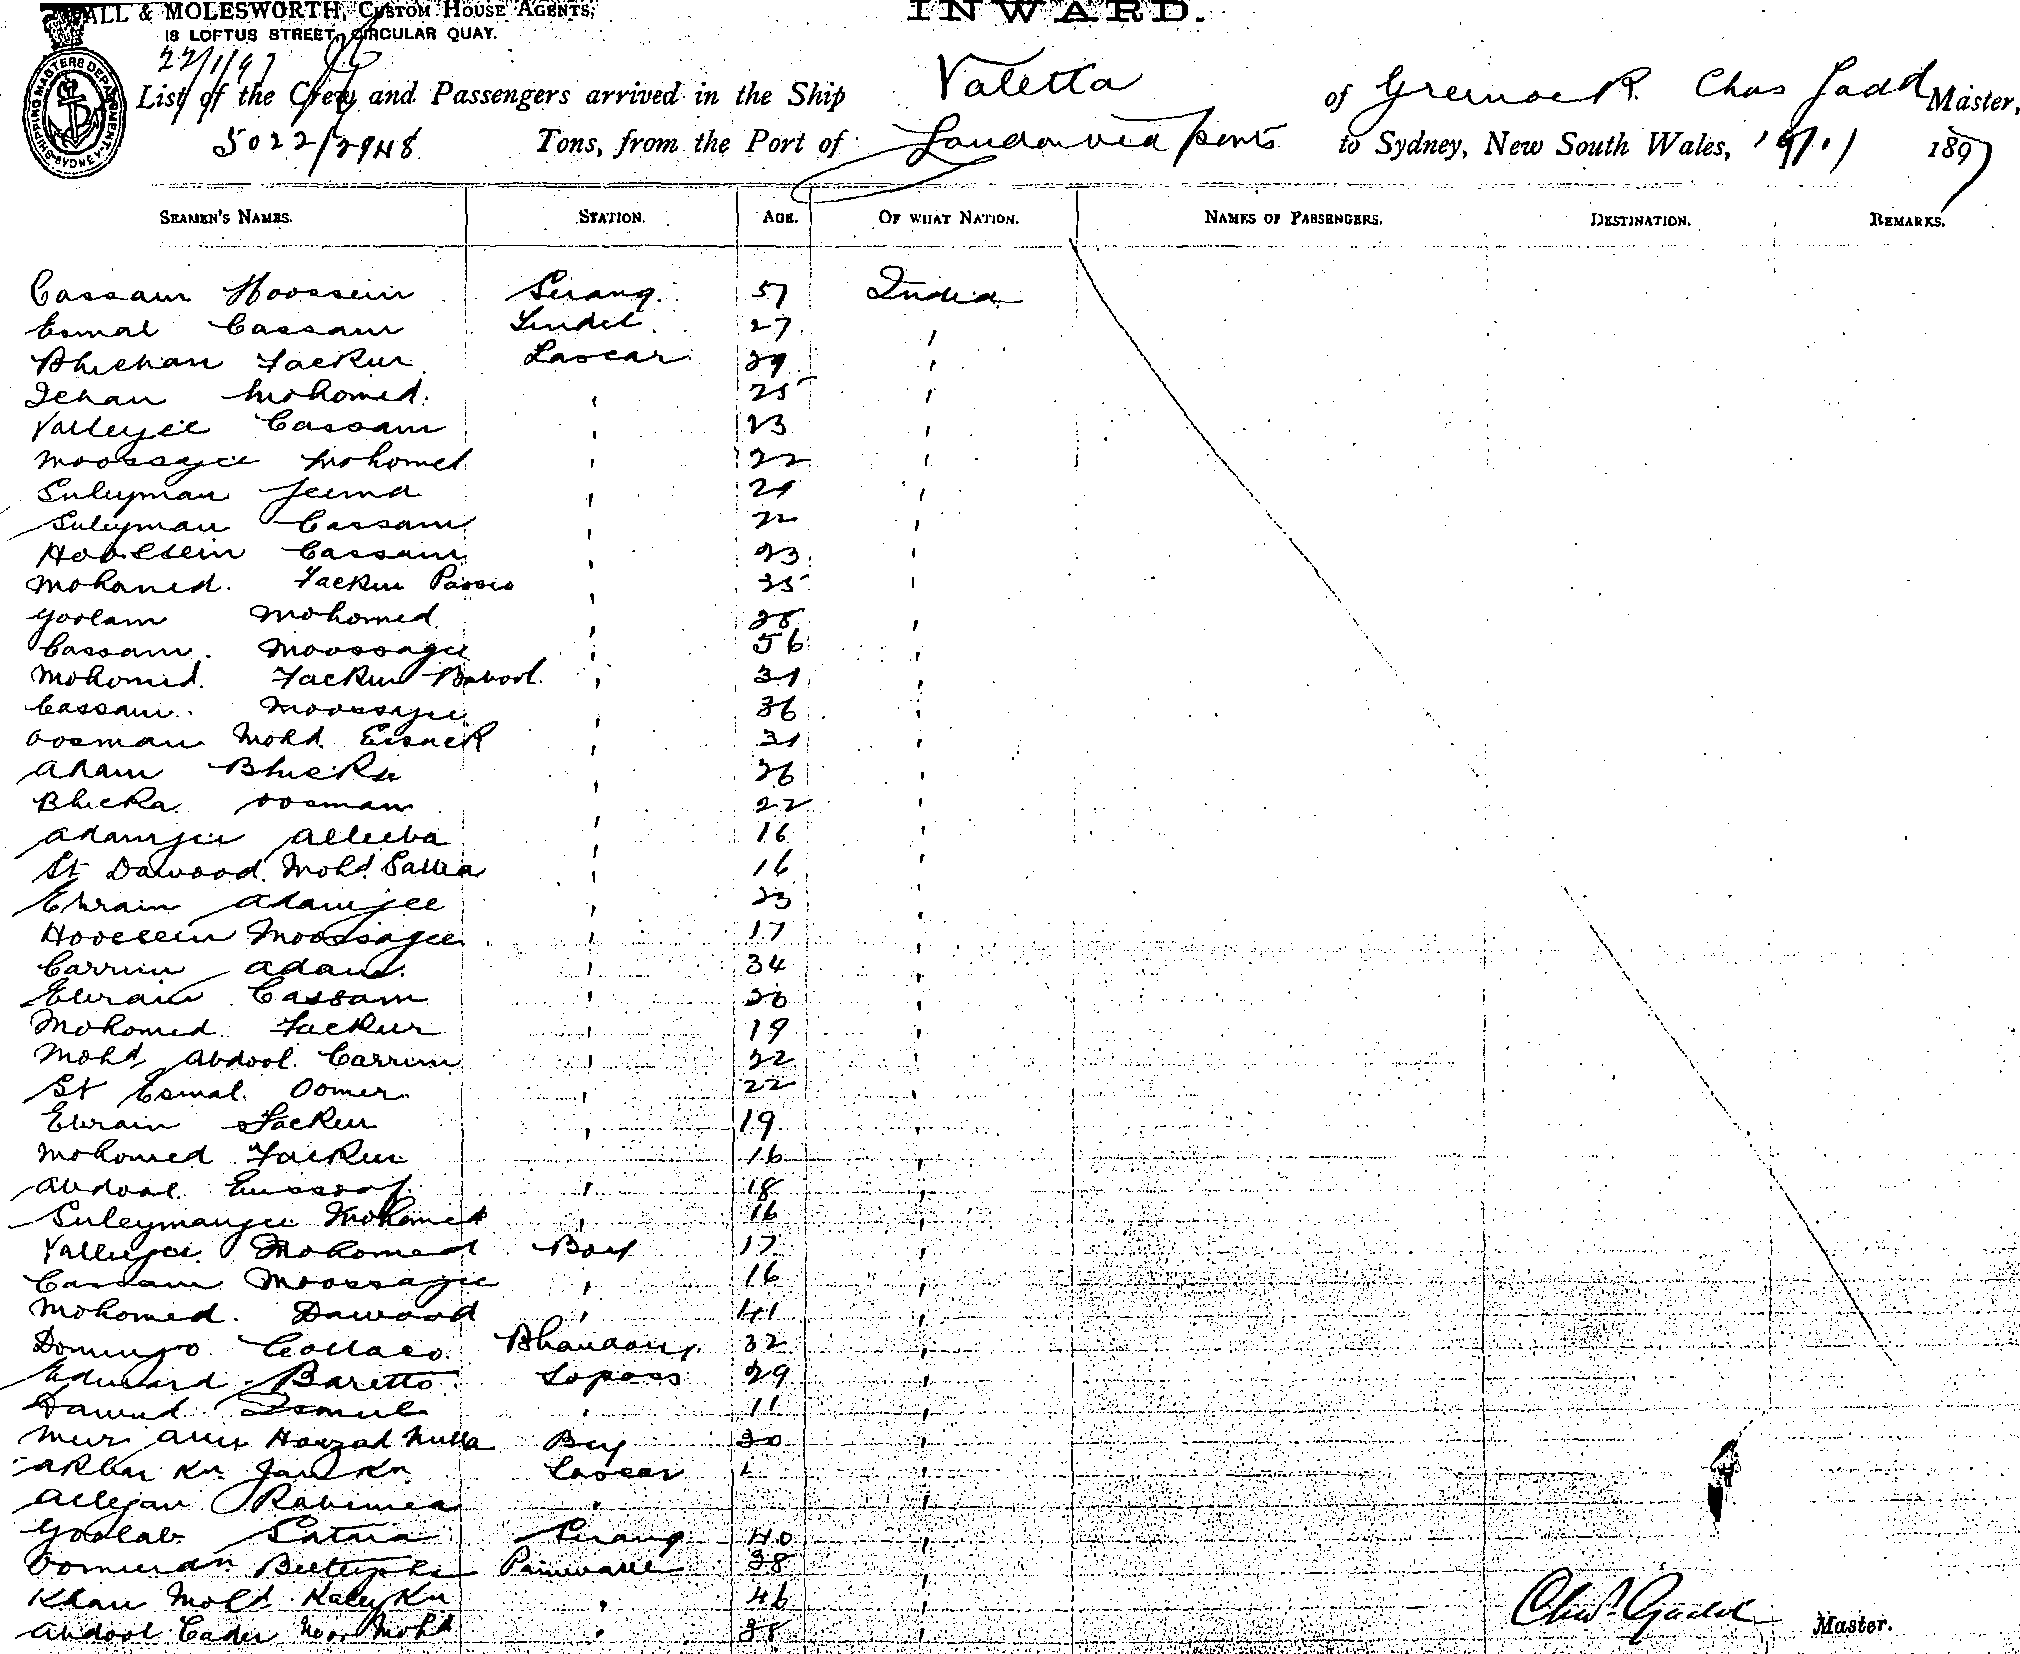 ALL & MOLESWORTH, CUSTOM HOUSE AGENTS,
18 LOFTUS STREET, CIRCULAR QUAY.
INWARD.
22/1/97
List of the Crew and Passengers arrived in the Ship Valetta of Greenock Chas Gadd Master,
5022/2948 Tons, from the Port of London via ports to Sydney, New South Wales, 19/1/ 1897
SEAMEN'S NAMES. STATION. AGE. OF WHAT NATION. NAMES OF PASSENGERS. DESTINATION. REMARKS.
Cassam Hoossein Serang 57 India
Esmal Cassam Tindel 27 "
Bhichan Fackur Lascar 29 "
Jehan Mohomed " 25 "
Valleyjee Cassam " 23 "
Moossajee Mohomed " 22 "
Suleyman Jeema "
Suleyman Cassam " 22 "
Hoossein Cassam " 23 "
Mohamed Fackur " 35 "
Goolam Mohomed " 28 "
Cassam Moossajee " 56 "
Mohomed Fackur " 31 "
Cassam Moossajee " 36 "
Oosman Mohd " 31 "
Adam Bhicka " 26 "
Bhicka Oosman " 22 "
Adamjee Alleeba " 16 "
St Dawood Mohd " 16 "
Ebrain Adamjee " 23 "
Hoossein Moossajee " 17 "
Carrim Adam " 34 "
Ebrain Cassam " 20 "
Mohomed Fackur " 19 "
Mohd Abdool Carrim " 22 "
St Esmal Oomer " 22 "
Ebrain Fackur " 19 "
Mohomed Fackur " 16 "
Abdool Eussoof " 18 "
Suleymanjee Mohomed " 16 "
Valleyjee Mohomed Boy 17 "
Cassam Moossajee " 16 "
Mohomed Dawood " 41 "
Domingo Collaco Bhandary 32 "
Edward Baretto Topass 29 "
Dawud Ismul " 11 "
Meer Boy 30 "
Akbar Kn Jan Kn Lascar "
Allejan " "
Goolab Serang 40 "
Paniwalla 38 "
Khan Mohd Kaley Kn " 46 "
Abdool Cader Noor Mohd " 38 "
Chas. Gadd Master.
SHIPPING MASTERS DEPARTMENT SYDNEY